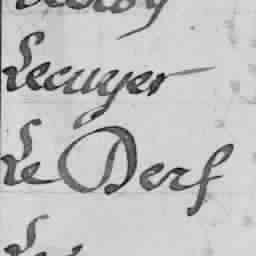 Lecuyer
Le Derf